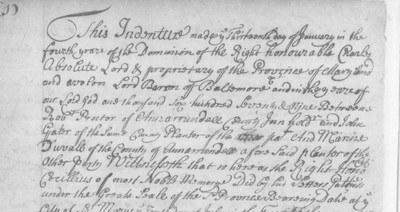 This Indenture made ye Thirteenth day of January in the
fourth yeare of the Dominion of the Right honourable Charles
Absolute Lord & proprietary of the Province of Maryland
and avelon Lord Baron of Baltemore and in the yeare of
our Lord god one thousand Six hundred Seventy & Nine Betweene
Robt Procter of Annarrundall County and John
Gater of the Same County Planter of the one part And Marine
Duvall of the County of Annarrundall afore Said planter of the
Other party Witnesseth that where as the Right Honoble
Cecillius of most Noble Memory Did by his Letters Patents
under the Greate Seale of the Sd Province Bearing Date at ye
City of St Maries